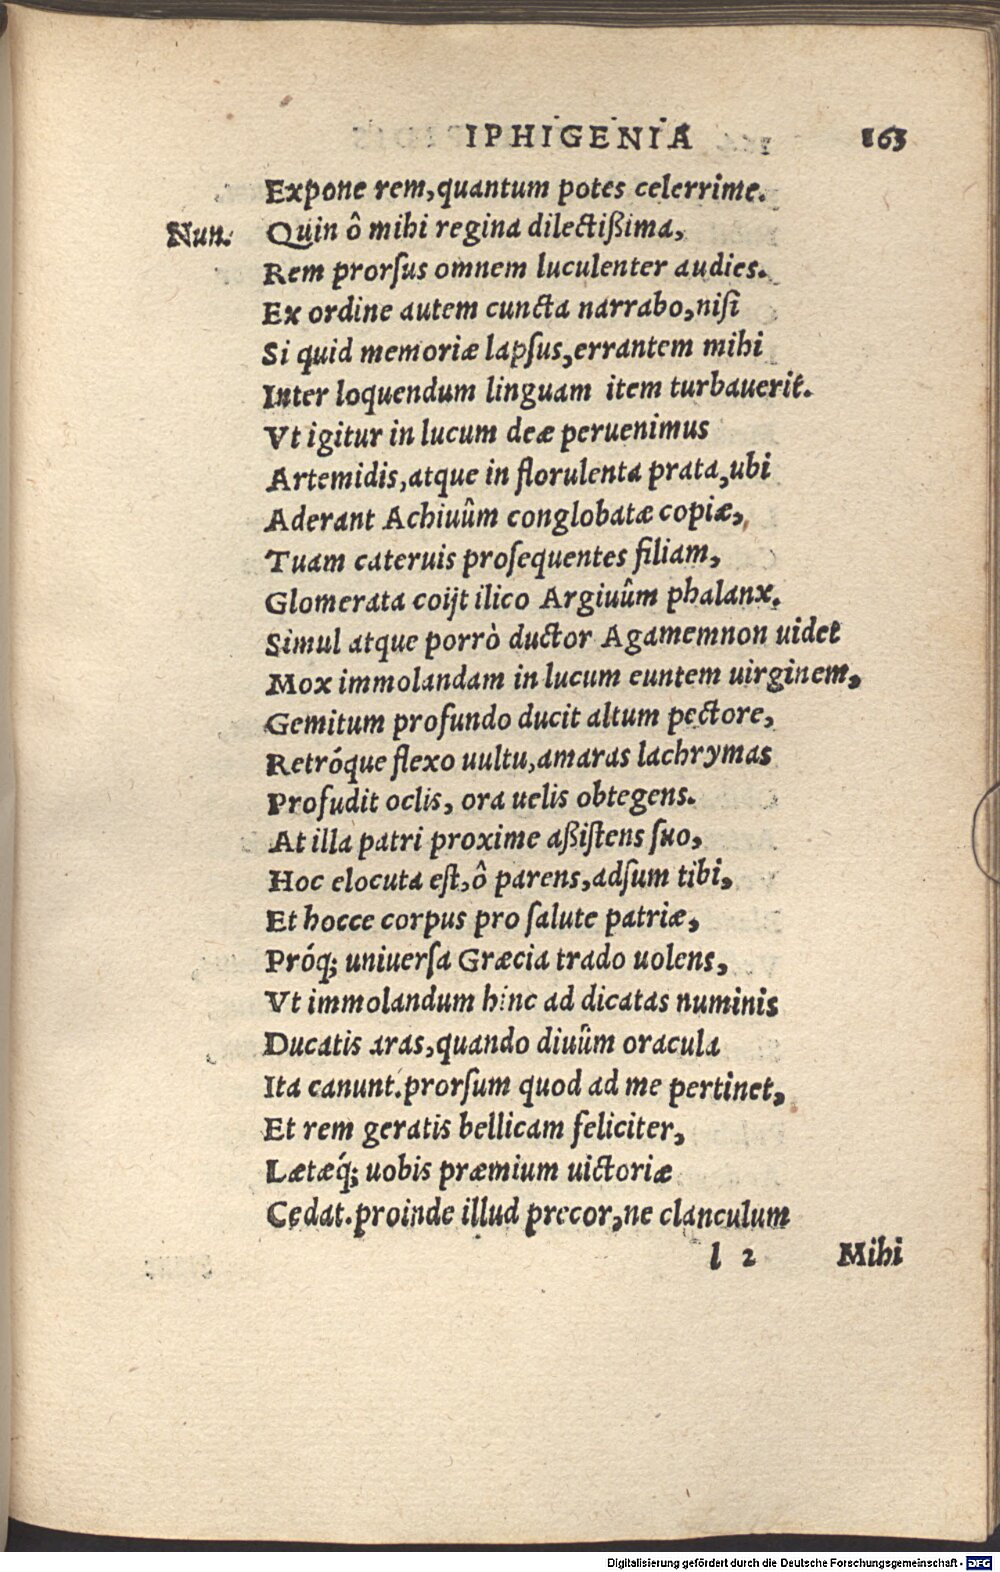 IPHIGENIA 163
Expone rem, quantum potes celerrime.
Nun. Quin ô mihi regina dilectißima,
Rem prorſus omnem luculenter audies.
Ex ordine autem cuncta narrabo, niſi
Si quid memoriæ lapſus, errantem mihi
Inter loquendum linguam item turbauerit.
Vt igitur in lucum deæ peruenimus
Artemidis, atque in florulenta prata, ubi
Aderant Achiuûm conglobatæ copiæ,
Tuam cateruis proſequentes filiam,
Glomerata coijt ilico Argiuûm phalanx.
Simul atque porrò ductor Agamemnon uidet
Mox immolandam in lucum euntem uirginem,
Gemitum profundo ducit altum pectore,
Retróque flexo uultu, amaras lachrymas
Profudit oclis, ora uelis obtegens.
At illa patri proxime aßiſtens ſuo,
Hoc elocuta eſt, ô parens, adſum tibi,
Et hocce corpus pro ſalute patriæ,
Próq; uniuerſa Græcia trado uolens,
Vt immolandum hinc ad dicatas numinis
Ducatis aras, quando diuûm oracula
Ita canunt. prorſum quod ad me pertinet,
Et rem geratis bellicam feliciter,
Lætæq́; uobis præmium uictoriæ
Cedat. proinde illud precor, ne clanculum
l 2 Mihi
Digitalisierung gefördert durch die Deutsche Forschungsgemeinschaft - DFG